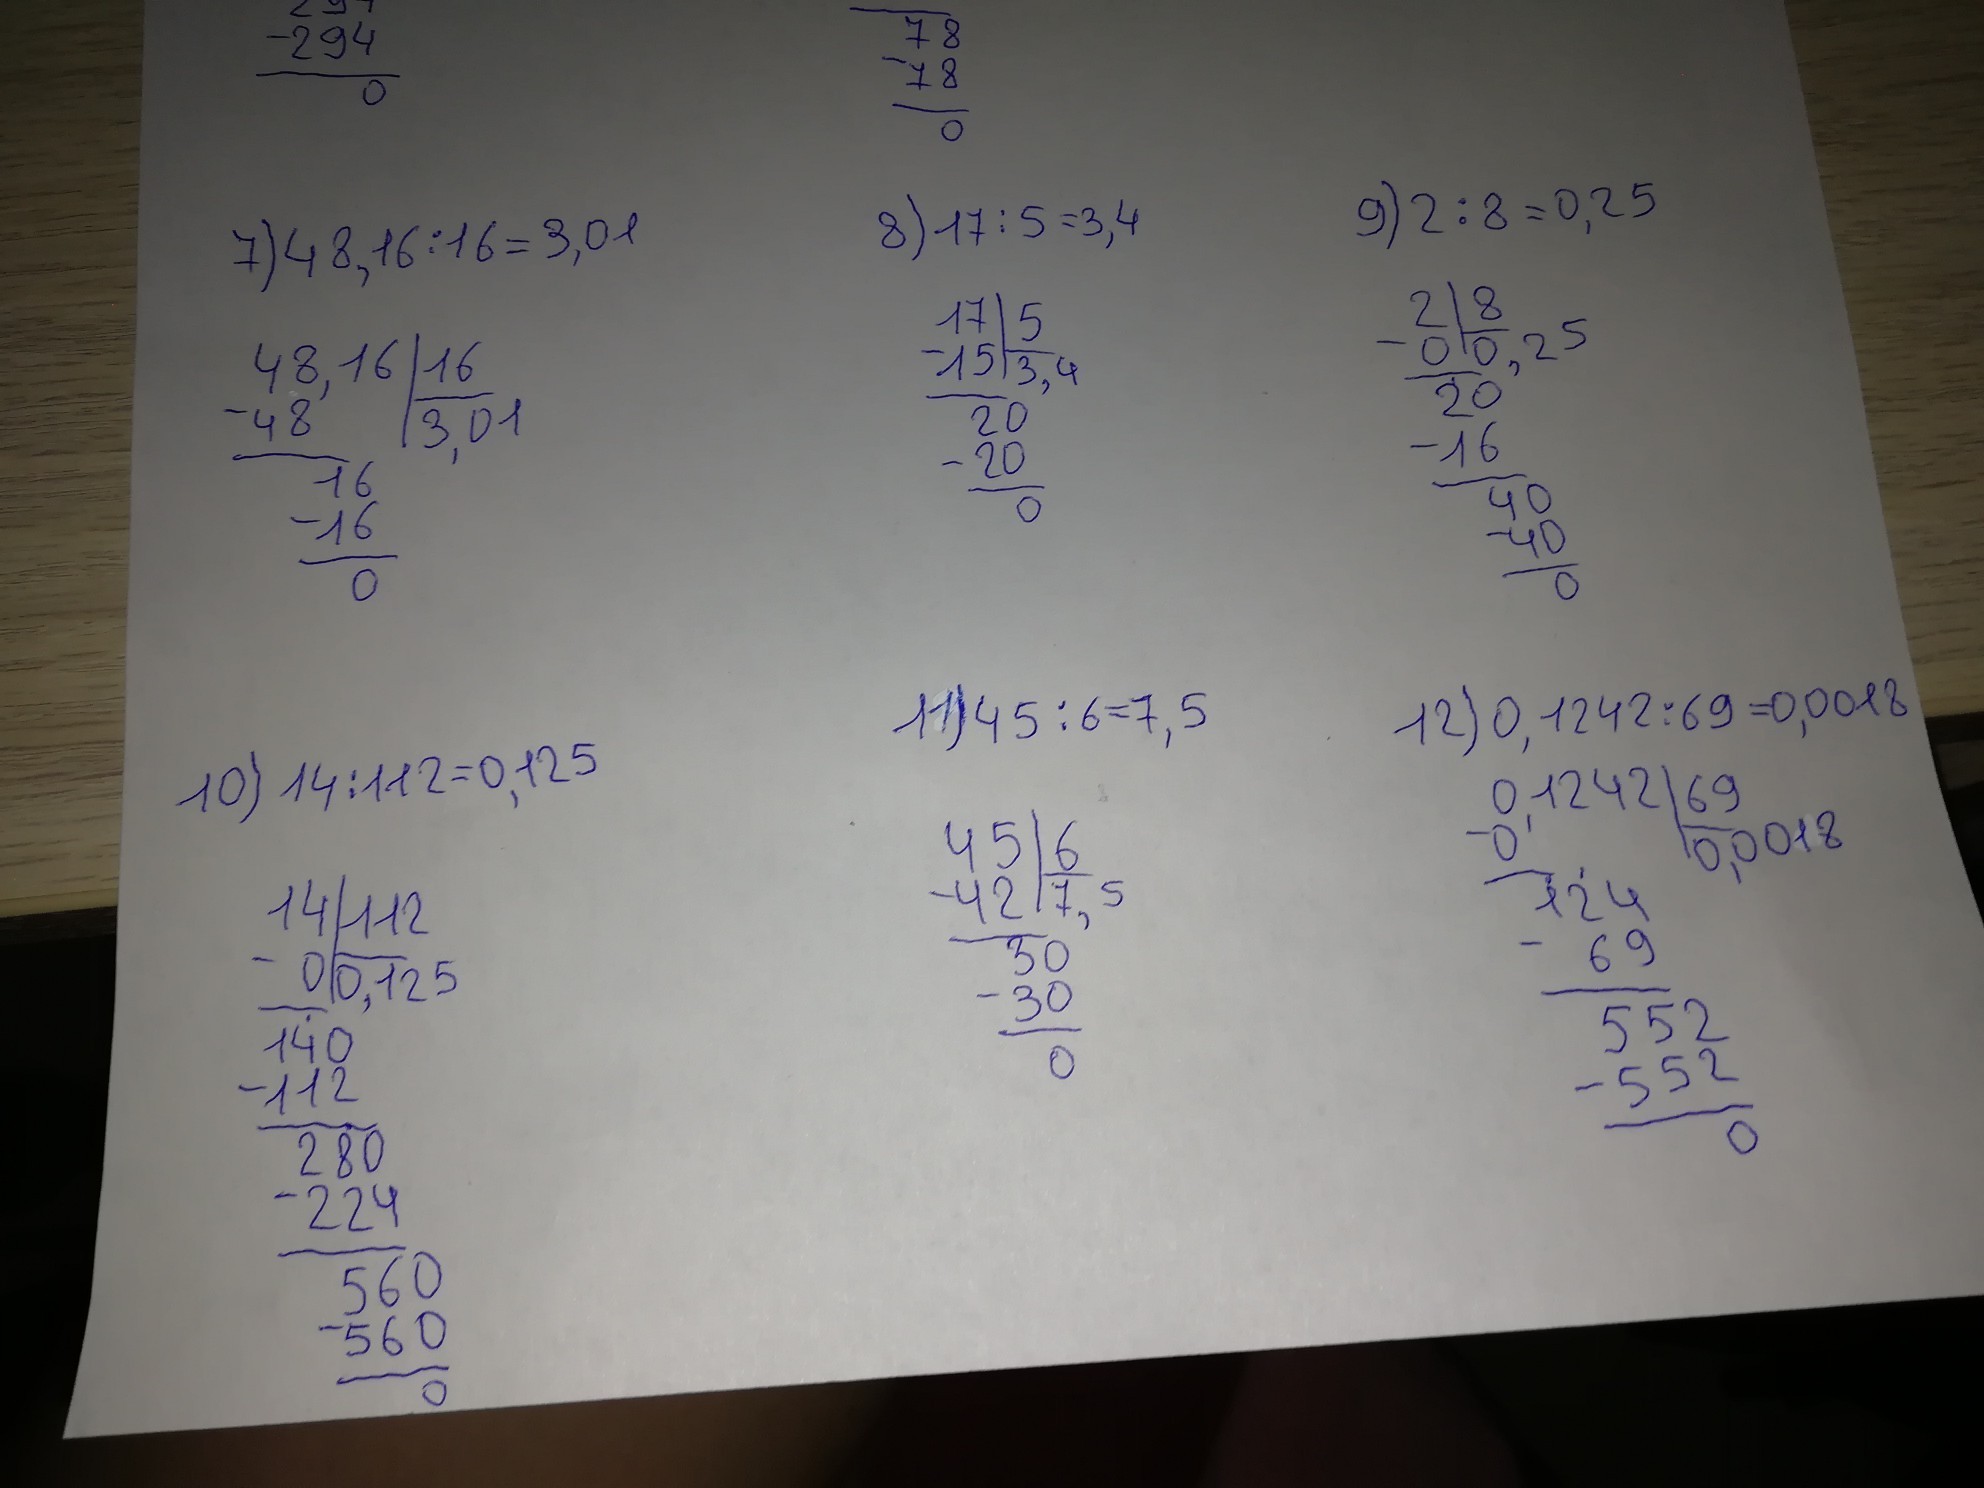 -294
0
78
-78
0
7) 48,16:16=3,01
48,16|16
-48 3,01
16
-16
0
8) 17:5=3,4
17|5
-15|3,4
20
-20
0
9) 2:8=0,25
2|8
-0|0,25
20
-16
40
-40
0
10) 14:112=0,125
14|112
-0|0,125
140
-112
280
-224
560
-560
0
11) 45:6=7,5
45|6
-42|7,5
30
-30
0
12) 0,1242:69=0,0018
0,1242|69
-0 0,0018
124
-69
552
-552
0